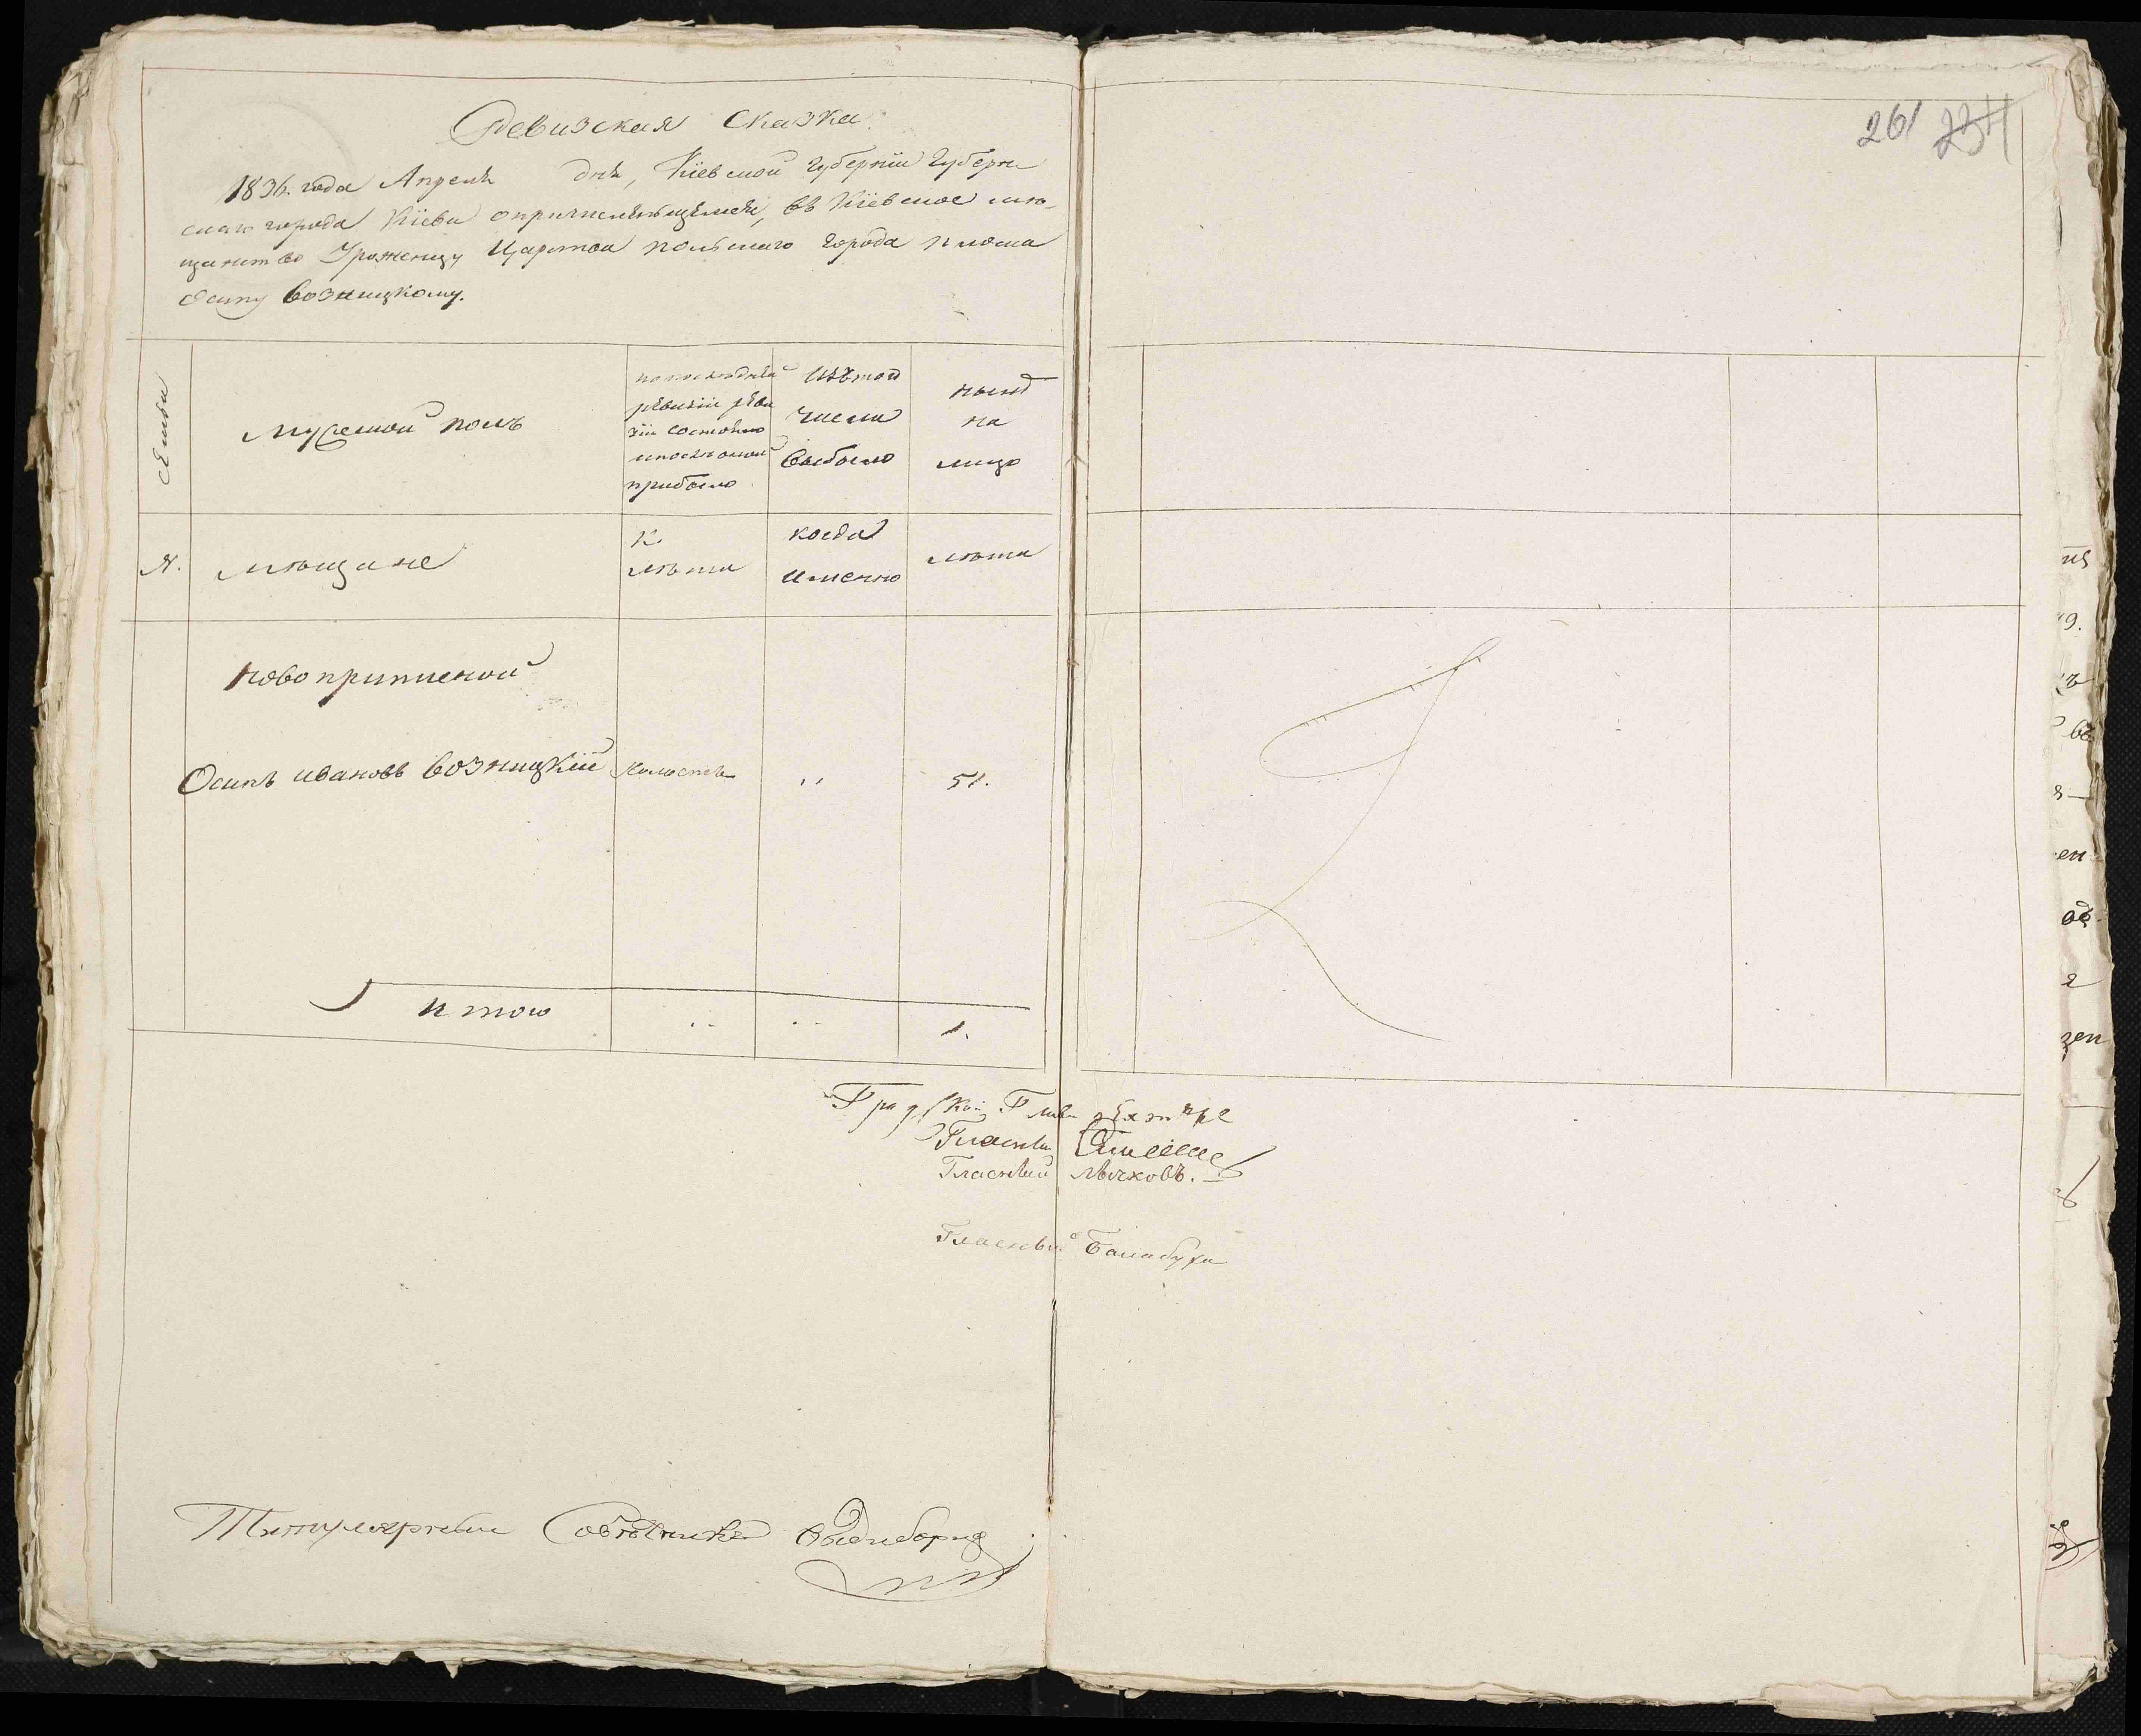 Ревизская Сказка
1836. года Апреля дня, Кіевской губерніи Губерн
скаго города Кіева о причислившемся, въ Кіевское мѣ-
щанство Уроженцу Царства польскаго города
Осипу Возницкому.
261 234
семьи
Мужеской полъ
по последней
ревизіи реви
зіи состояло
и после оной
прибыло
Изъ того
числа
выбыло
нынѣ
на
лицо
№.
мѣщане
лѣта
когда
именно
лѣта
Новоприписной
Осипъ Ивановъ Возницкій Холостъ ,, 51.
Итого .. .. 1.
Градской Глава
Гласный
Гласный Лычковъ.
Гласный Балабуха
Титулярный Советникъ